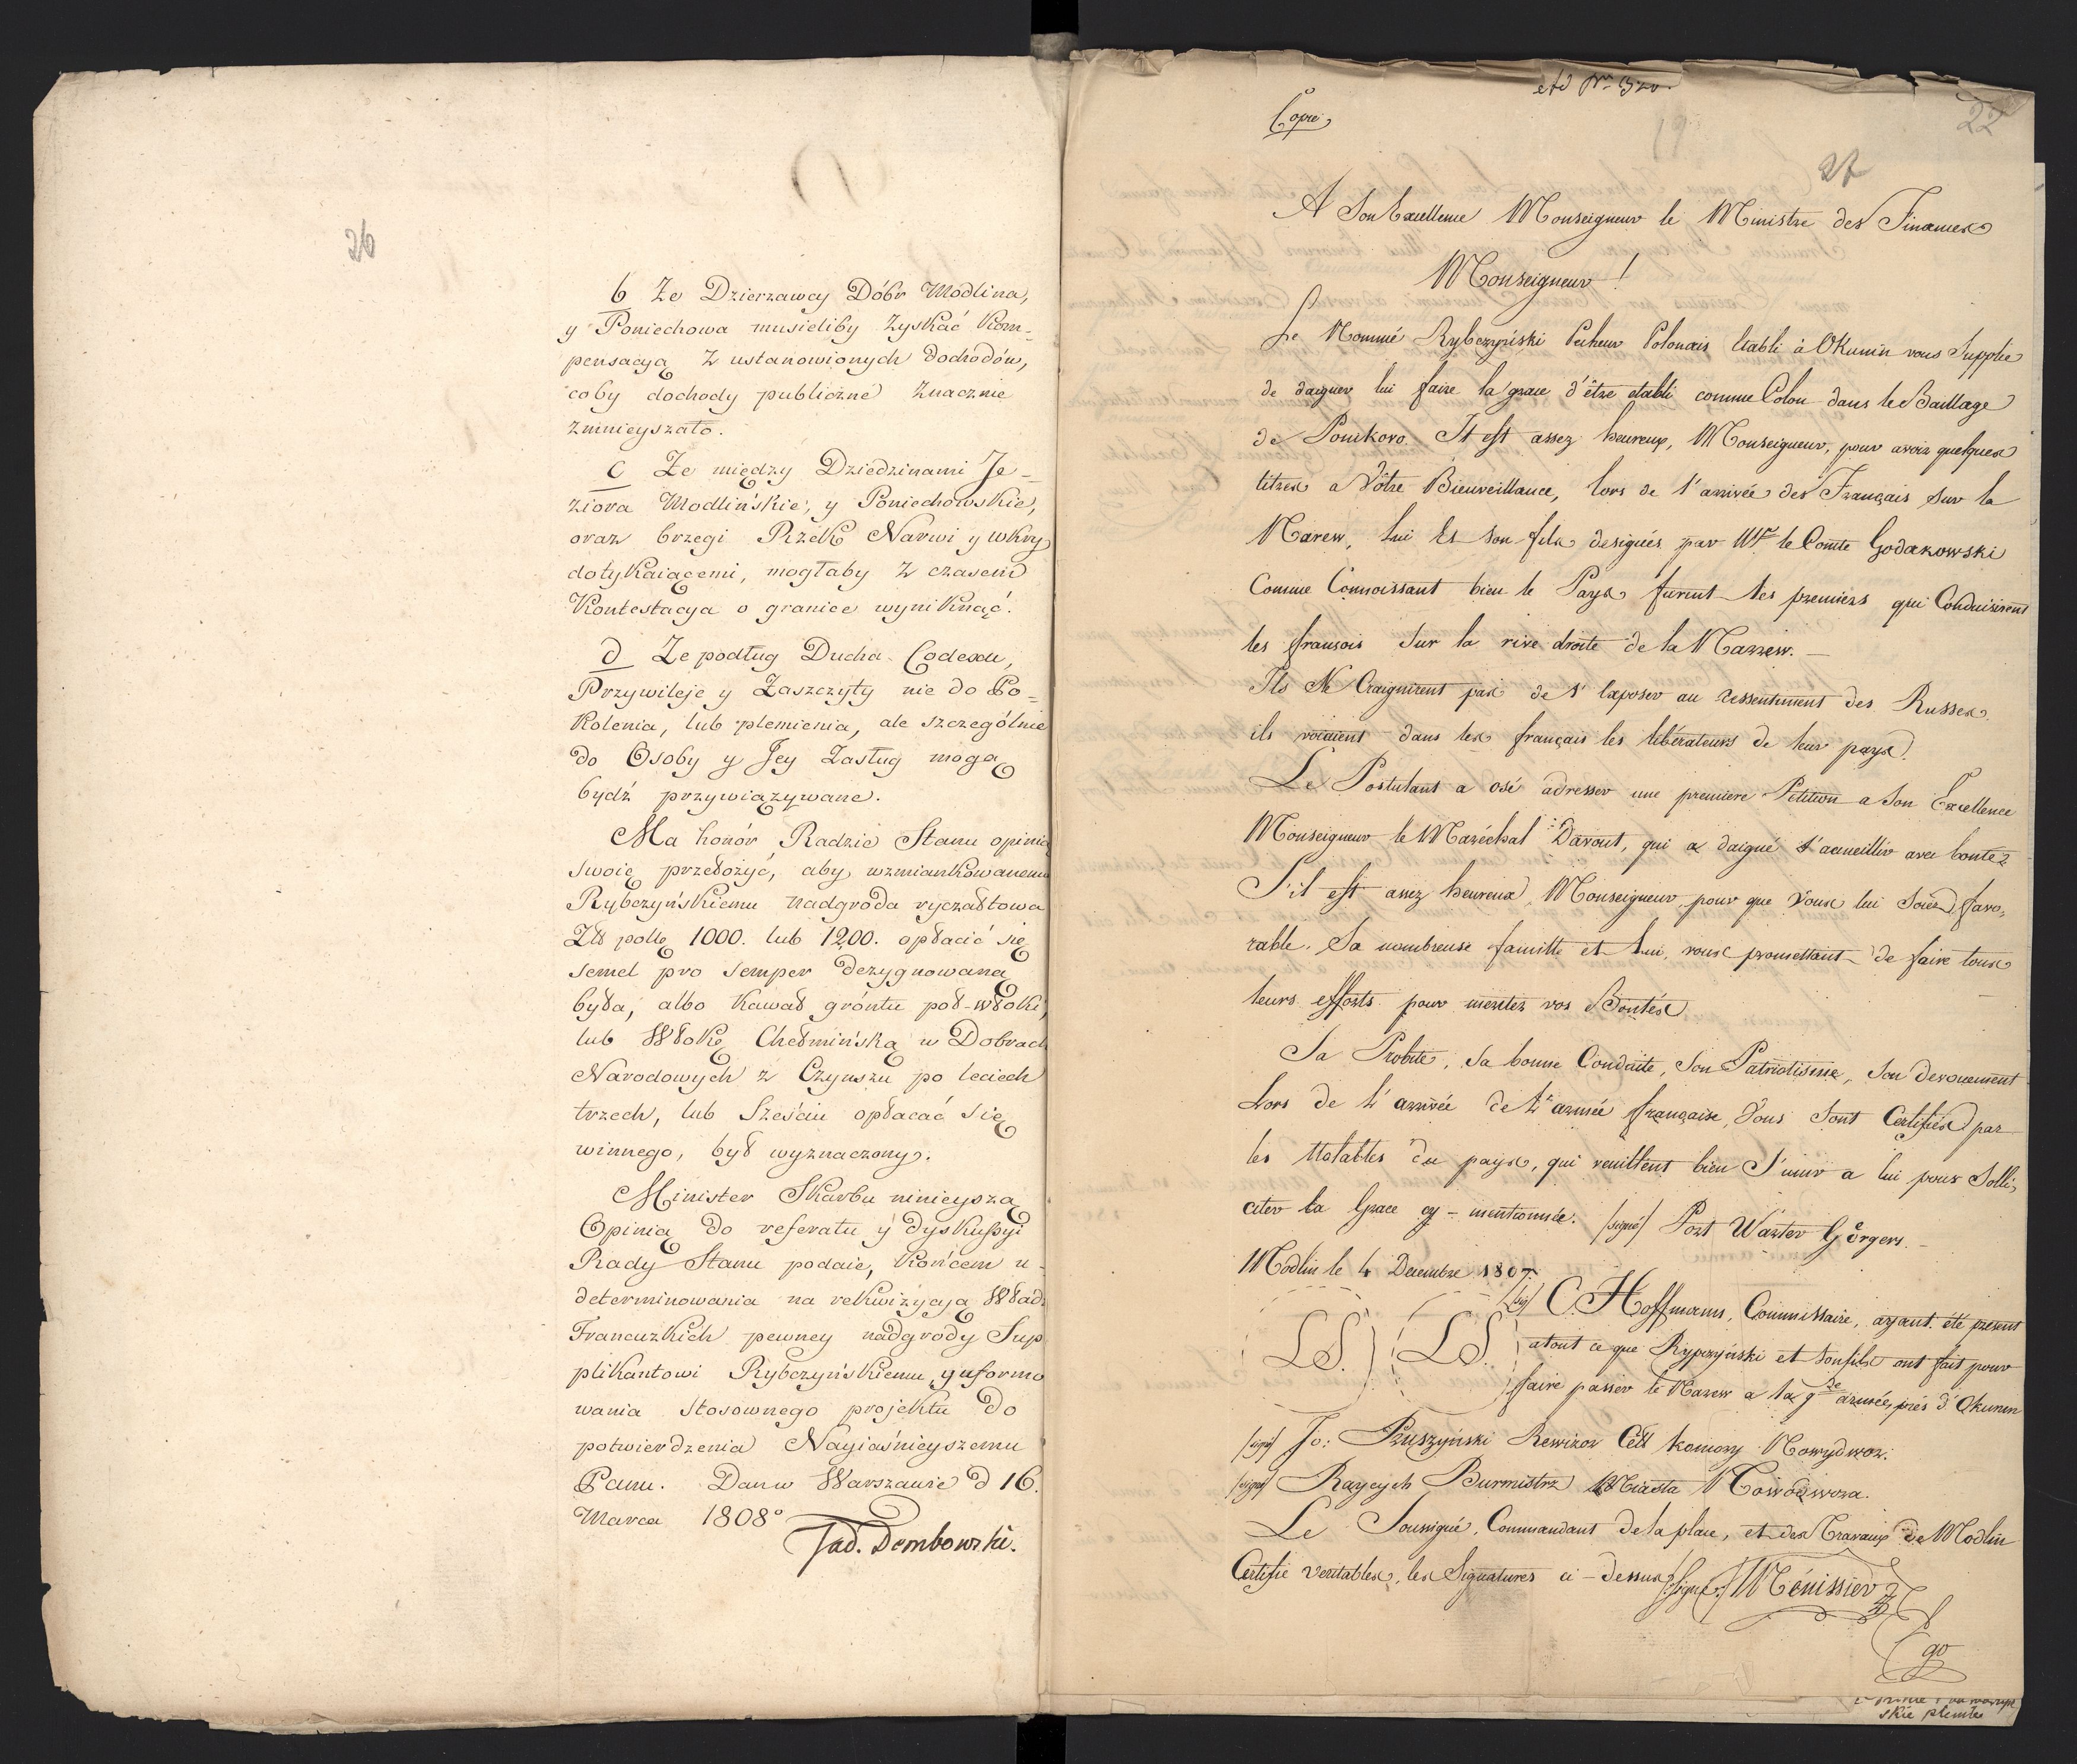 26
b Że Dzierzawcy Dóbr Modlina,
y Poniechowa musieliby zyskać kom-
pensacyą z ustanowionych dochodów,
coby dochody publiczne znacznie
zmnieyszało.
c Że między Dziedzinami Je-
ziora Modlińskie, y Poniechowskie,
oraz brzegi Rzek Narwi y wkry
dotykaiącemi, mogłaby z czasem
Kontestacya o granice wyniknąć.
d Że podług Ducha Codexu,
Przywileje y Zaszczyty nie do Po-
kolenia, lub plemienia, ale szczególnie
do Osoby y Jey Zasług mogą
bydź przywiązywane.
Ma honór Radzie Stanu opinią
swoię przełożyć, aby wzmiankowanemu
Rybczyńskiemu nadgroda ryczałtowa
Złł polłę 1000. lub 1200. opłacić się
semel pro semper dezygnowaną
była, albo kawał gróntu pół-włoki,
lub Włokę Chełmińską w Dobrach
Narodowych z Czynszu po leciech
trzech, lub Sześciu opłacać się
winnego, był wyznaczony.
Minister Skarbu ninieyszą
Opinią do referatu y dyskussyi
Rady Stanu podaie, końcem u-
determinowania na rekwizycyą Wład:
Francuzkich pewney nadgrody Sup
plikantowi Rybczyńskiemu, y uformo
wania stosownego projektu do
potwierdzenia Nayiaśnieyszemu
Panu. Dan w Warszawie d 16.
Marca 1808°
Tad. Dembowski.
ad Nr 320.
Copie
22
27
A Son Excellence Monseigneur le Ministre des Finances
Monseigneur!
Le Nommé Rybczyński Pecheur Polonais Etabli à Okunin vous Supplie
de daigner lui faire la grace d'être etabli comme Colon dans le Baillage
de Pomikovo. It est assez heureux, Monseigneur, pour avoir quelques
titres a Vôtre Bienveillance, lors de l'arrivée des Français sur la
Narew, lui Et son fils designés par Mr le Comte Godakowski
Comme Connoissant bien le Pays furent les premiers qui Conduisirent
les fransois Sur la rive droite de la Narrew. —
Ils Ne Craignirent pas de s'exposer au ressentiment des Russes,
ils voiaient dans les français les libérateurs de leur pays.
Le Postulant a osé adresser une premiere Petition a Son Excellence
Monseigneur le Maréchal Davout, qui a daigné l'acueillir avec bonté.
S'il est assez heureux, Monseigneur, pour que Vous lui Soiez favo-
rable. Sa nombreuse famille et Lui, vous promettant de faire tous
leurs efforts pour meriter vos Bontés
Sa Probité, Sa bonne Conduite, Son Patriotisme, Son devouement
Lors de L'arrivée de L'armée française, Vous Sont Certifiés par
les Notables du pays, qui veuillent bien S'unir a lui pour Solli-
citer la Grace cy-mentionnée. /signé/ Port Warter Görgers. —
Modlin le 4 Decembre 1807.
/sig/ C. Hoffmann, Commissaire, ayant été present
LS. LS. atout ce que Rypczyński et son fils ont fait pour
faire passer le Narew a la gde armée, près d'Okunin
/signé/ Jo: Pruszyński Rewizor Cell Komory Nowydwor:
/signé/ Raycych Burmistrz Miasta Nowodwora.
Le Soussigné, Commandant de la place, et des Travaux de Modlin
Certifie veritables, les Signatures ci-dessus /signé/ Ménissier
skie plemie